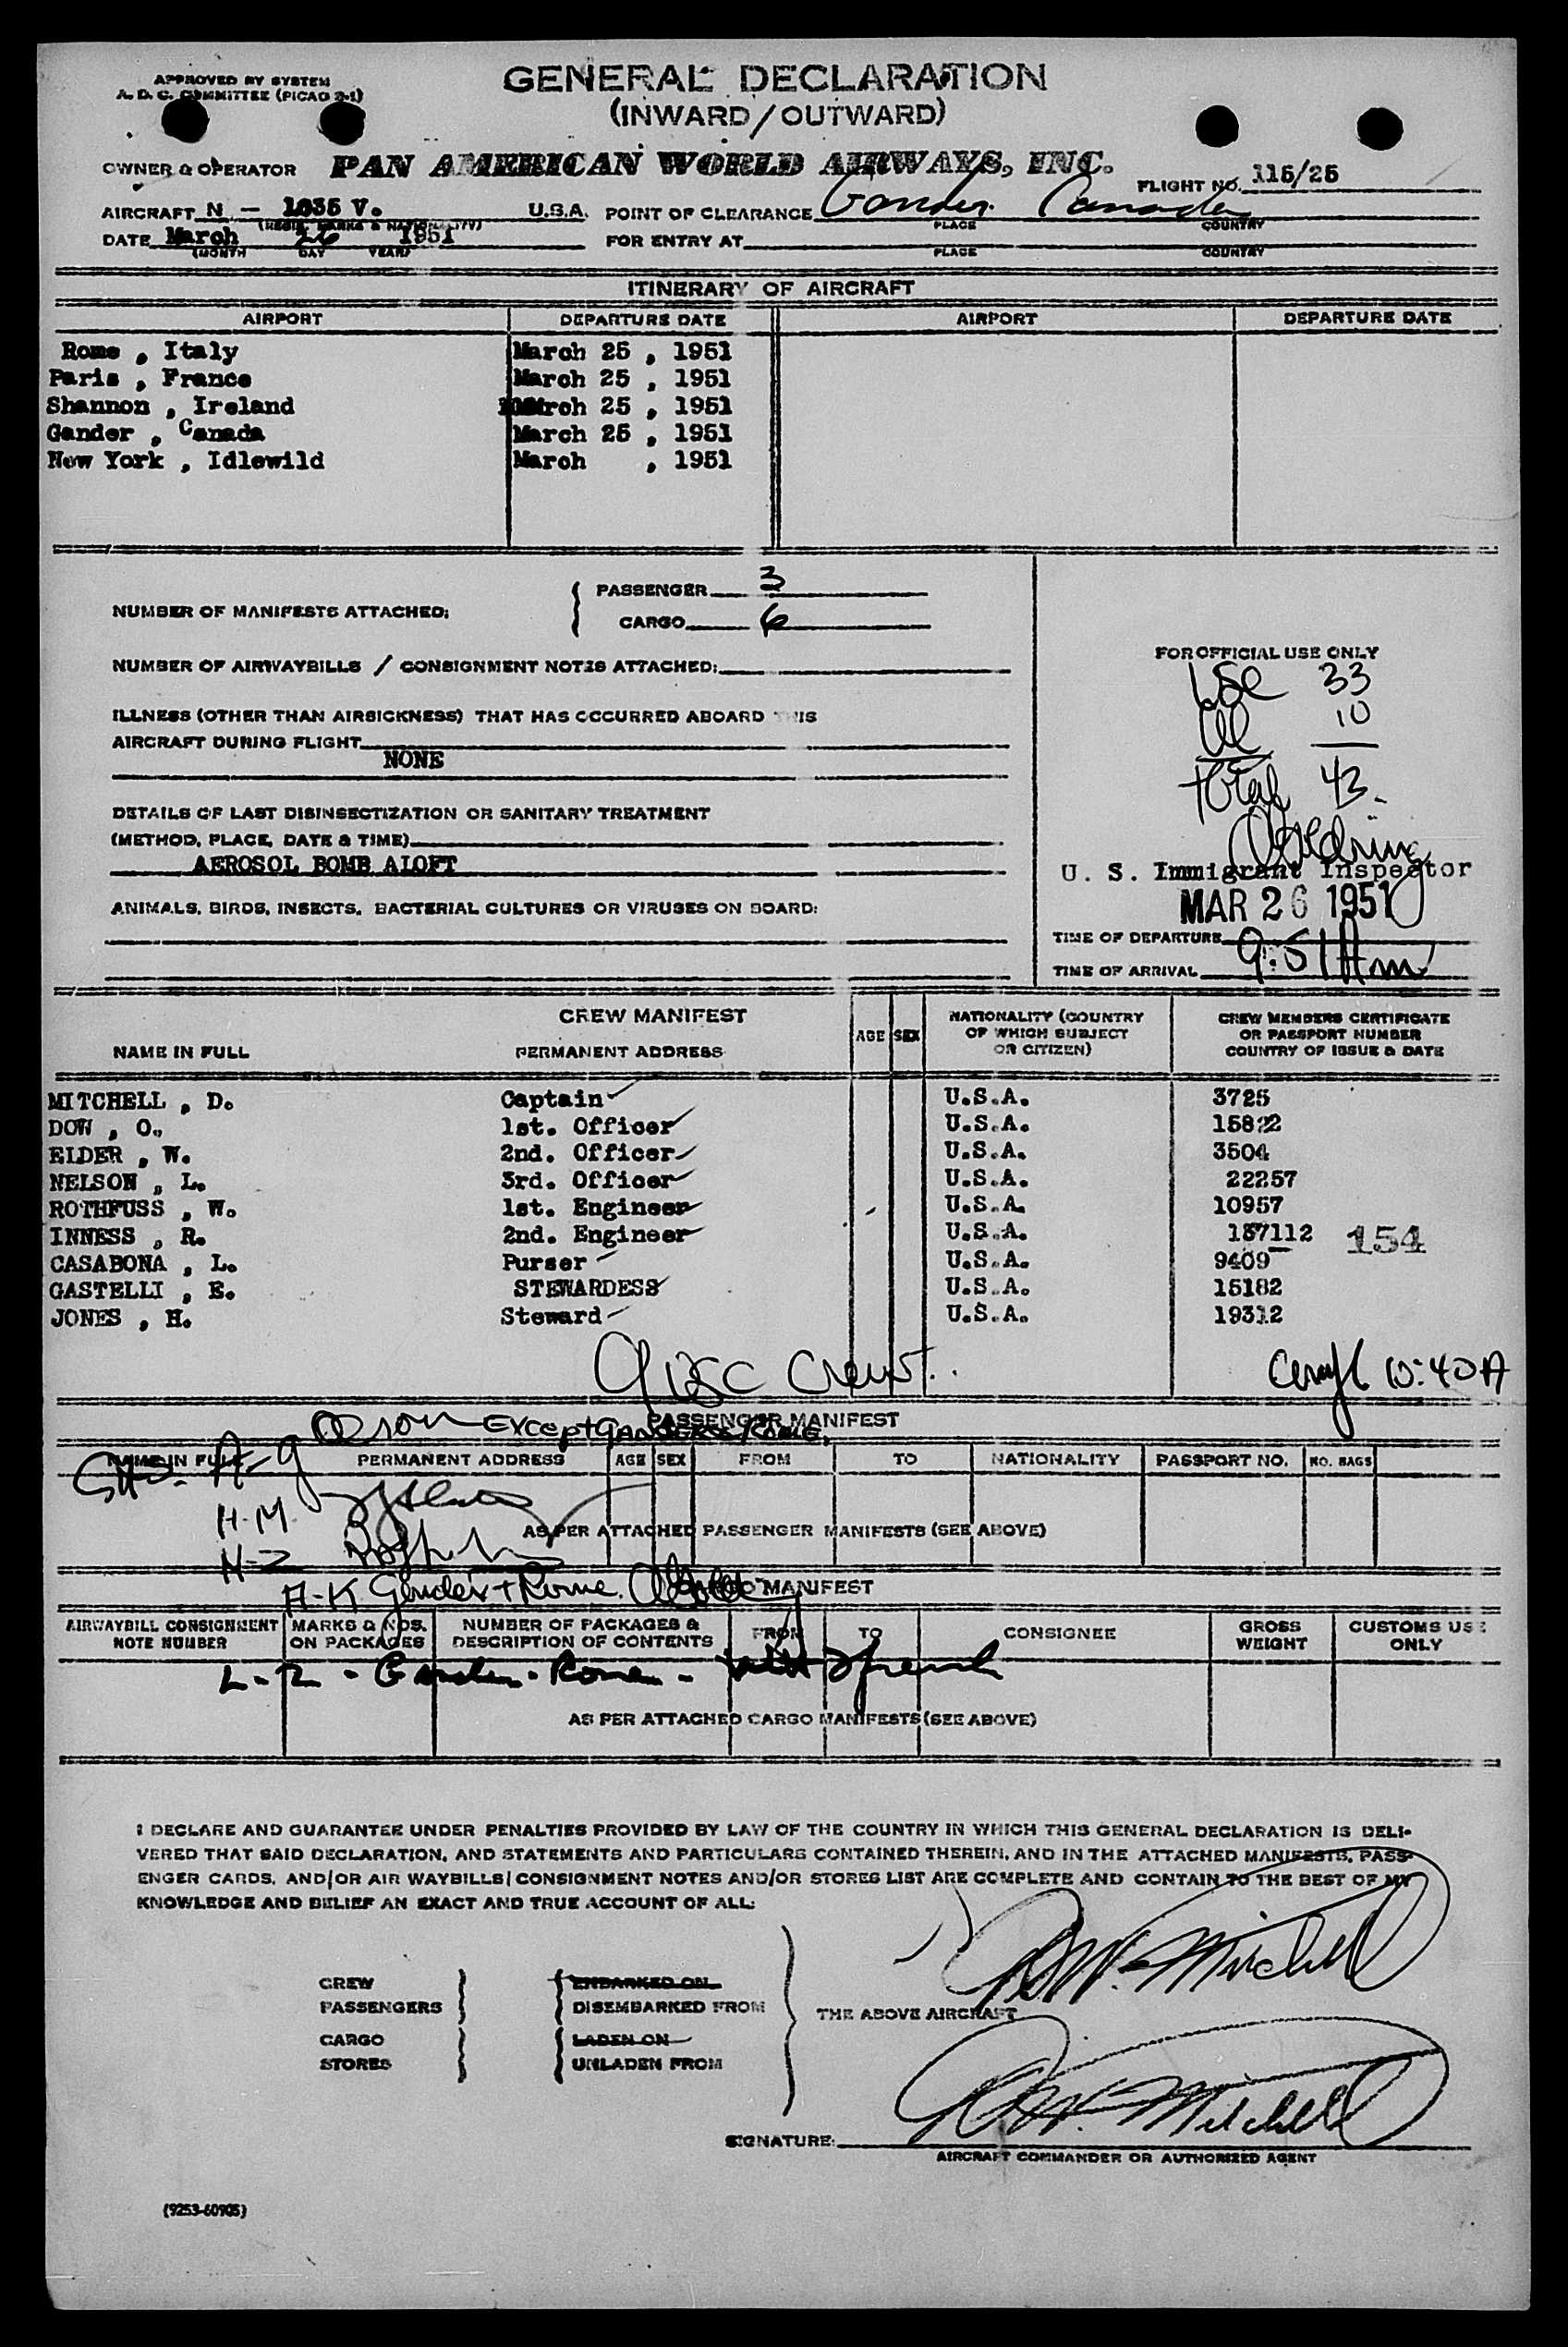 APPROVED BY SYSTEM
A. D. C. COMMITTEE (PICAO 2-1)
GENERAL DECLARATION
(INWARD/OUTWARD)
OWNER & OPERATOR PAN AMERICAN WORLD AIRWAYS, INC.
FLIGHT NO. 115/25
AIRCRAFT N - 1035 V. U.S.A. POINT OF CLEARANCE Gander Canada
(REGIS. MARKS & NATIONALITY) PLACE COUNTRY
DATE March 26 1951 FOR ENTRY AT
(MONTH DAY YEAR) PLACE COUNTRY
ITINERARY OF AIRCRAFT
AIRPORT DEPARTURE DATE AIRPORT DEPARTURE DATE
Rome , Italy March 25 , 1951
Paris , France March 25 , 1951
Shannon , Ireland March 25 , 1951
Gander , Canada March 25 , 1951
New York , Idlewild March , 1951
NUMBER OF MANIFESTS ATTACHED: PASSENGER 3
CARGO 6
NUMBER OF AIRWAYBILLS / CONSIGNMENT NOTES ATTACHED:
ILLNESS (OTHER THAN AIRSICKNESS) THAT HAS OCCURRED ABOARD THIS
AIRCRAFT DURING FLIGHT
NONE
DETAILS OF LAST DISINSECTIZATION OR SANITARY TREATMENT
(METHOD, PLACE, DATE & TIME)
AEROSOL BOMB ALOFT
ANIMALS, BIRDS, INSECTS, BACTERIAL CULTURES OR VIRUSES ON BOARD:
FOR OFFICIAL USE ONLY
USC 33
al 10
total 43.
U. S. Immigrant Inspector
MAR 26 1951
TIME OF DEPARTURE
TIME OF ARRIVAL 9:51 Am
CREW MANIFEST
NAME IN FULL PERMANENT ADDRESS AGE SEX NATIONALITY (COUNTRY OF WHICH SUBJECT OR CITIZEN) CREW MEMBERS CERTIFICATE OR PASSPORT NUMBER COUNTRY OF ISSUE & DATE
MITCHELL , D. Captain U.S.A. 3725
DOW , O. 1st. Officer U.S.A. 15822
ELDER , W. 2nd. Officer U.S.A. 3504
NELSON , L. 3rd. Officer U.S.A. 22257
ROTHFUSS , W. 1st. Engineer U.S.A. 10957
INNESS , R. 2nd. Engineer U.S.A. 187112 154
CASABONA , L. Purser U.S.A. 9409
GASTELLI , E. STEWARDESS U.S.A. 15182
JONES , H. Steward U.S.A. 19312
9 USC Crew. 10:40A
PASSENGER MANIFEST
Except GANDER & ROME.
A-G
NAME IN FULL PERMANENT ADDRESS AGE SEX FROM TO NATIONALITY PASSPORT NO. NO. BAGS
H-M
AS PER ATTACHED PASSENGER MANIFESTS (SEE ABOVE)
N-Z
A-K Gander + Rome.
CARGO MANIFEST
AIRWAYBILL CONSIGNMENT NOTE NUMBER MARKS & NOS. ON PACKAGES NUMBER OF PACKAGES & DESCRIPTION OF CONTENTS FROM TO CONSIGNEE GROSS WEIGHT CUSTOMS USE ONLY
L-Z - Gander - Rome -
AS PER ATTACHED CARGO MANIFESTS (SEE ABOVE)
I DECLARE AND GUARANTEE UNDER PENALTIES PROVIDED BY LAW OF THE COUNTRY IN WHICH THIS GENERAL DECLARATION IS DELI-
VERED THAT SAID DECLARATION, AND STATEMENTS AND PARTICULARS CONTAINED THEREIN, AND IN THE ATTACHED MANIFESTS, PASS-
ENGER CARDS, AND/OR AIR WAYBILLS/CONSIGNMENT NOTES AND/OR STORES LIST ARE COMPLETE AND CONTAIN TO THE BEST OF MY
KNOWLEDGE AND BELIEF AN EXACT AND TRUE ACCOUNT OF ALL:
CREW EMBARKED ON
PASSENGERS DISEMBARKED FROM
THE ABOVE AIRCRAFT D.W. Mitchell
CARGO LADEN ON
STORES UNLADEN FROM
SIGNATURE: D.W. Mitchell
AIRCRAFT COMMANDER OR AUTHORIZED AGENT
(9253-60905)